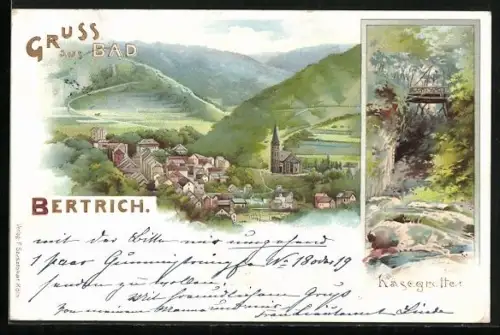 GRUSS
aus BAD
BERTRICH.
Käsegrotte.
mit der Bitte mir umgehend
1 paar Gummistrümpfe No 18 oder 19
senden zu wollen.
Mit freundlichem Gruß
von meinem Manne